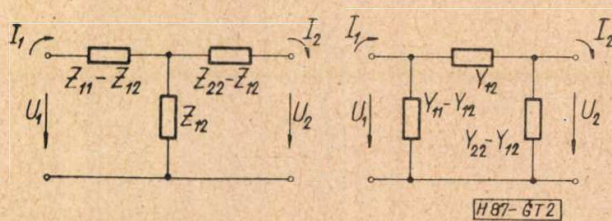 I₁ I₂
Z₁₁-Z₁₂ Z₂₂-Z₁₂
U₁ Z₁₂ U₂
I₁ I₂
Y₁₂
U₁ Y₁₁-Y₁₂ Y₂₂-Y₁₂ U₂
H87-GT2